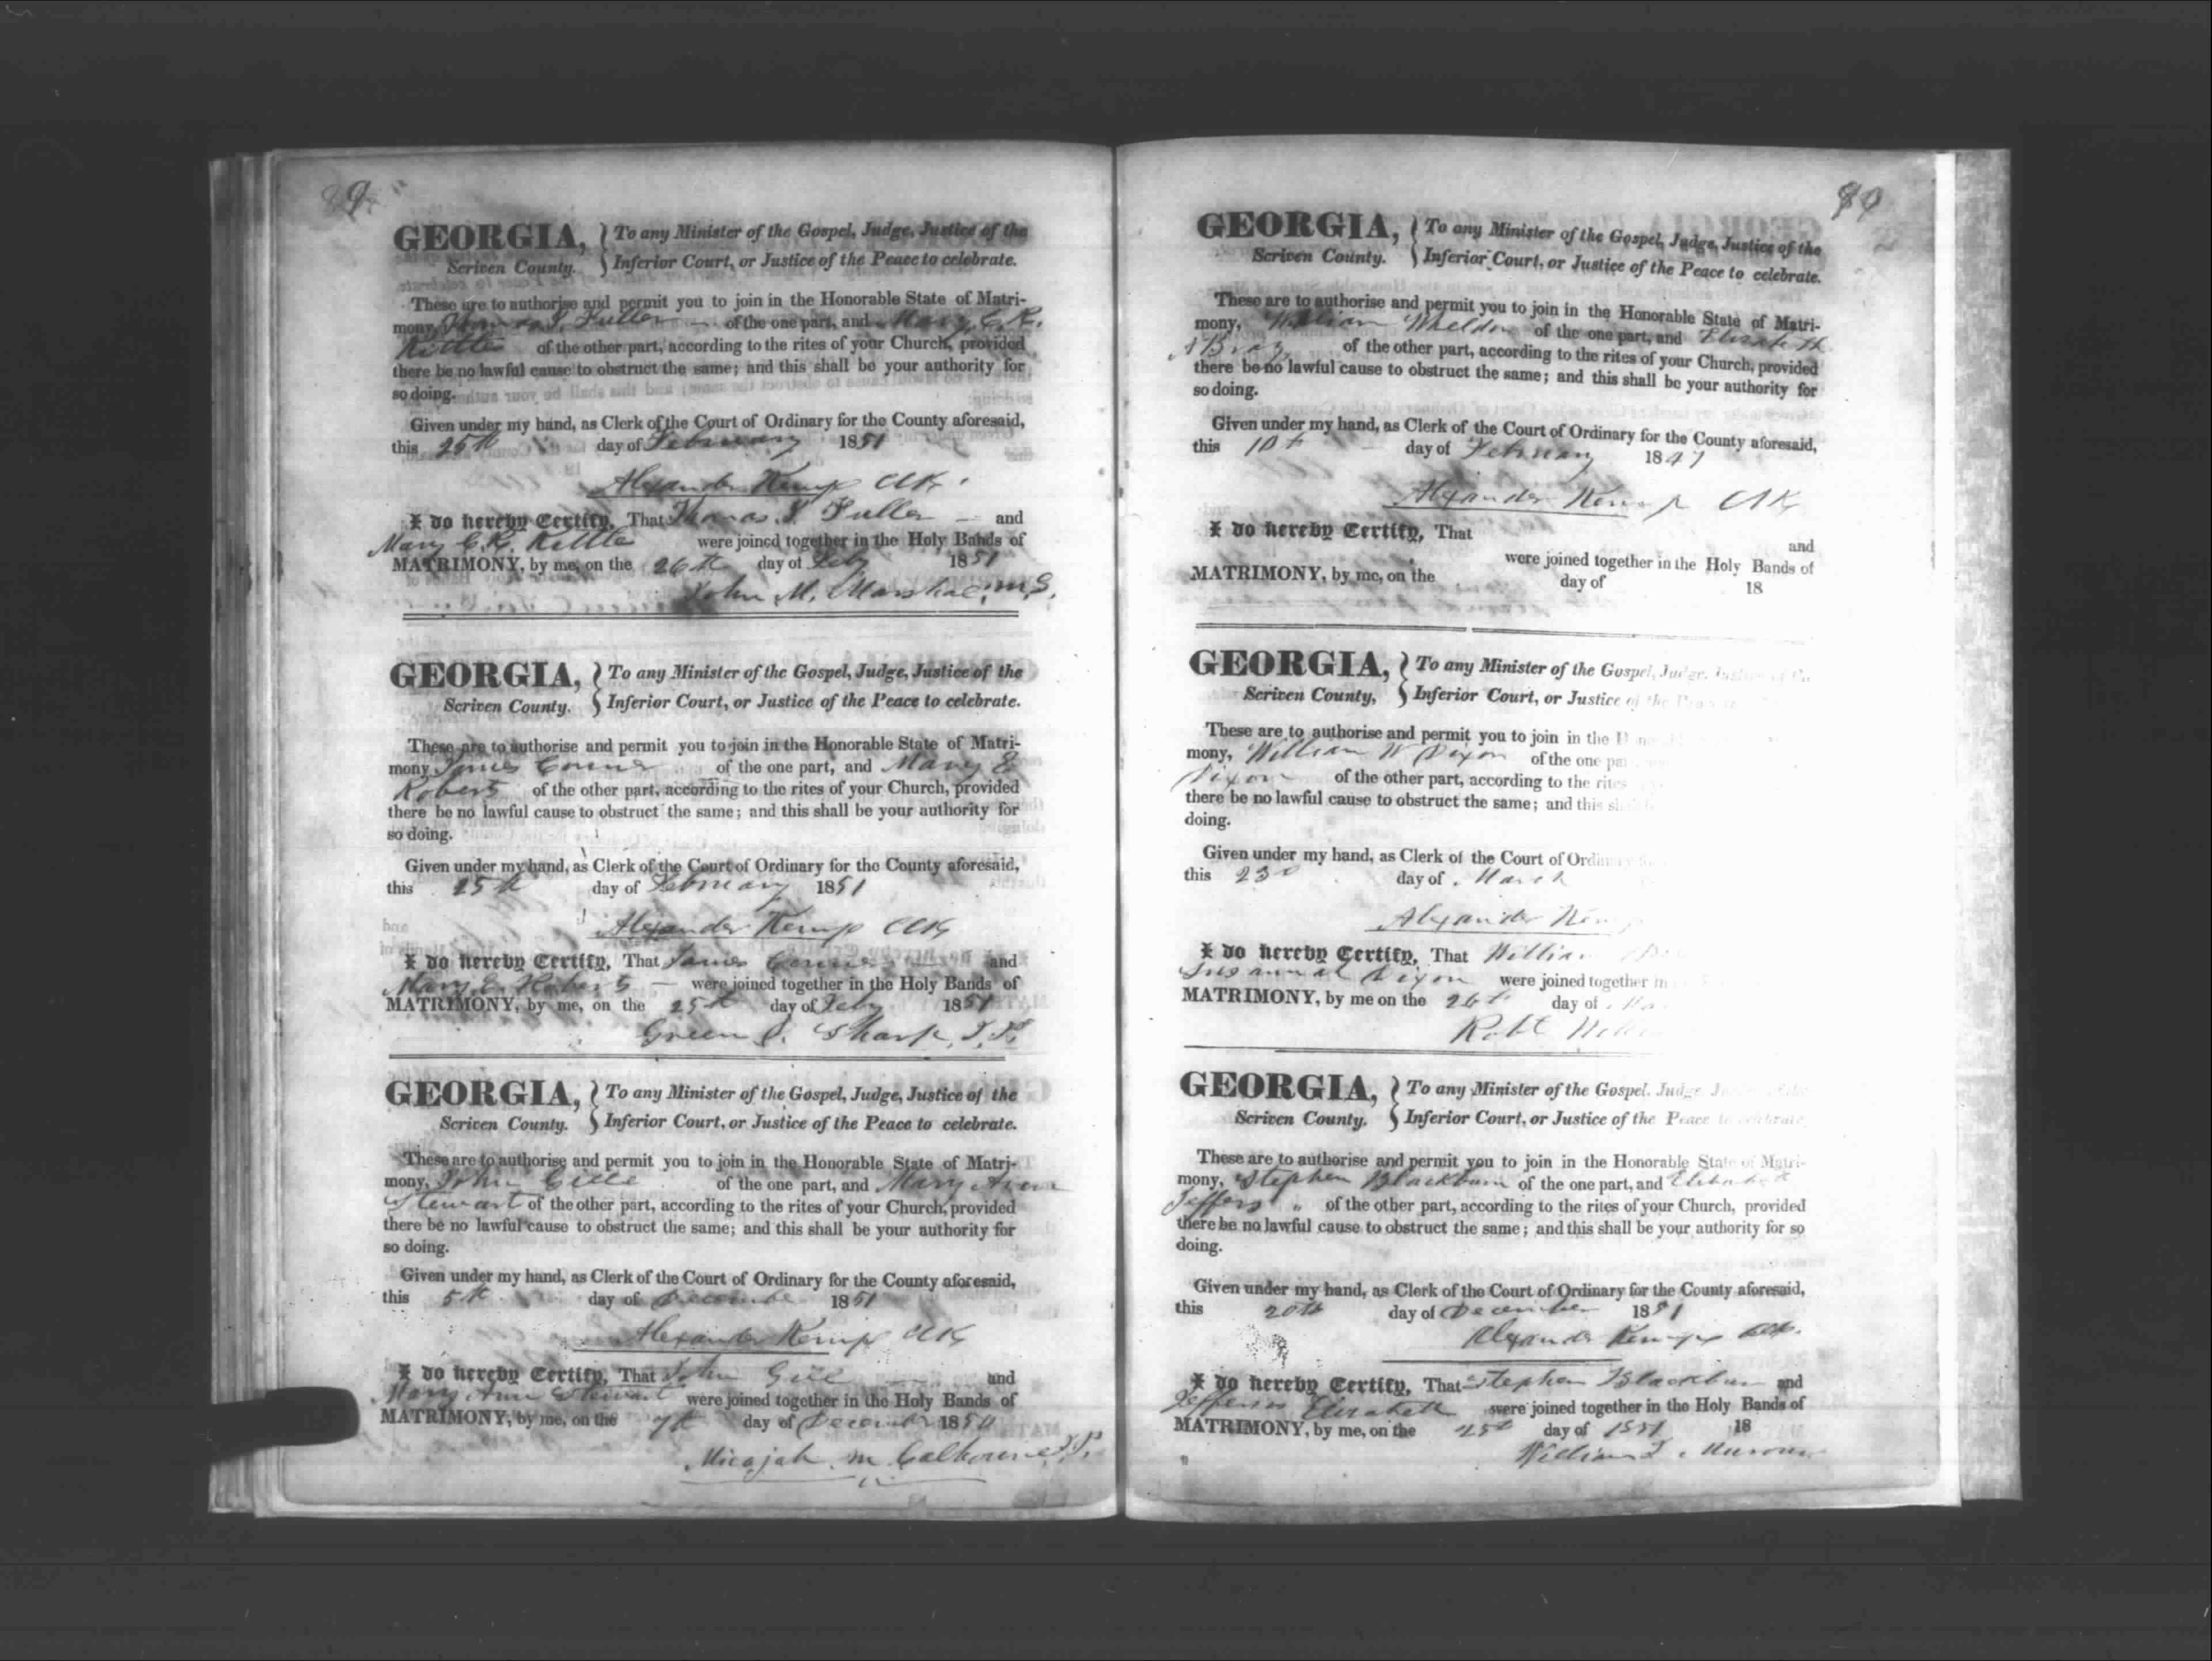 89
GEORGIA, To any Minister of the Gospel, Judge, Justice of the
Scriven County. Inferior Court, or Justice of the Peace to celebrate.
These are to authorise and permit you to join in the Honorable State of Matri-
mony, Thomas S. Fuller of the one part, and Mary C. K.
Kittles of the other part, according to the rites of your Church, provided
there be no lawful cause to obstruct the same; and this shall be your authority for
so doing.
Given under my hand, as Clerk of the Court of Ordinary for the County aforesaid,
this 25th day of February 1851
Alexander Kemp Clk.
I do hereby Certify, That Thomas S. Fuller and
Mary C. K. Kittle were joined together in the Holy Bands of
MATRIMONY, by me, on the 26th day of Feby 1851
John M. Marshal, M.G.
GEORGIA, To any Minister of the Gospel, Judge, Justice of the
Scriven County. Inferior Court, or Justice of the Peace to celebrate.
These are to authorise and permit you to join in the Honorable State of Matri-
mony James Conner of the one part, and Mary E
Roberts of the other part, according to the rites of your Church, provided
there be no lawful cause to obstruct the same; and this shall be your authority for
so doing.
Given under my hand, as Clerk of the Court of Ordinary for the County aforesaid,
this 25th day of February 1851
Alexander Kemp Clk
I do hereby Certify, That James Conner and
Mary E. Roberts were joined together in the Holy Bands of
MATRIMONY, by me, on the 25th day of Feby 1851
Green Sharp, J.P.
GEORGIA, To any Minister of the Gospel, Judge, Justice of the
Scriven County. Inferior Court, or Justice of the Peace to celebrate.
These are to authorise and permit you to join in the Honorable State of Matri-
mony, John Gill of the one part, and Mary Ann
Stewart of the other part, according to the rites of your Church, provided
there be no lawful cause to obstruct the same; and this shall be your authority for
so doing.
Given under my hand, as Clerk of the Court of Ordinary for the County aforesaid,
this 5th day of December 1851
Alexander Kemp Clk
I do hereby Certify, That John Gill and
Mary Ann Stewart were joined together in the Holy Bands of
MATRIMONY, by me, on the 7th day of December 1850
Micajah M Calhoun J.P.
GEORGIA, To any Minister of the Gospel, Judge, Justice of the
Scriven County. Inferior Court, or Justice of the Peace to celebrate.
These are to authorise and permit you to join in the Honorable State of Matri-
mony, William Wheldon of the one part, and Elizabeth
A Bray of the other part, according to the rites of your Church, provided
there be no lawful cause to obstruct the same; and this shall be your authority for
so doing.
Given under my hand, as Clerk of the Court of Ordinary for the County aforesaid,
this 10th day of February 1847
Alexander Kemp Clk
I do hereby Certify, That
and
were joined together in the Holy Bands of
MATRIMONY, by me, on the day of 18
GEORGIA, To any Minister of the Gospel, Judge, Justice of the
Scriven County, Inferior Court, or Justice of the Peace
These are to authorise and permit you to join in the
mony, William W Dixon of the one
Dixon of the other part, according to the rites
there be no lawful cause to obstruct the same; and this
doing.
Given under my hand, as Clerk of the Court of Ordinary
this 23d day of March
Alexander Kemp
I do hereby Certify, That William
Susannah Dixon were joined together
MATRIMONY, by me on the 26th day of
Robt
GEORGIA, To any Minister of the Gospel. Judge
Scriven County. Inferior Court, or Justice of the Peace to celebrate.
These are to authorise and permit you to join in the Honorable State of Matri-
mony, Stephen Blackburn of the one part, and Elizabeth
Jeffers of the other part, according to the rites of your Church, provided
there be no lawful cause to obstruct the same; and this shall be your authority for so
doing.
Given under my hand, as Clerk of the Court of Ordinary for the County aforesaid,
this 20th day of December 1851
Alexander Kemp Clk.
I do hereby Certify, That Stephen Blackburn and
Elizabeth were joined together in the Holy Bands of
MATRIMONY, by me, on the 25th day of 1851 18
William